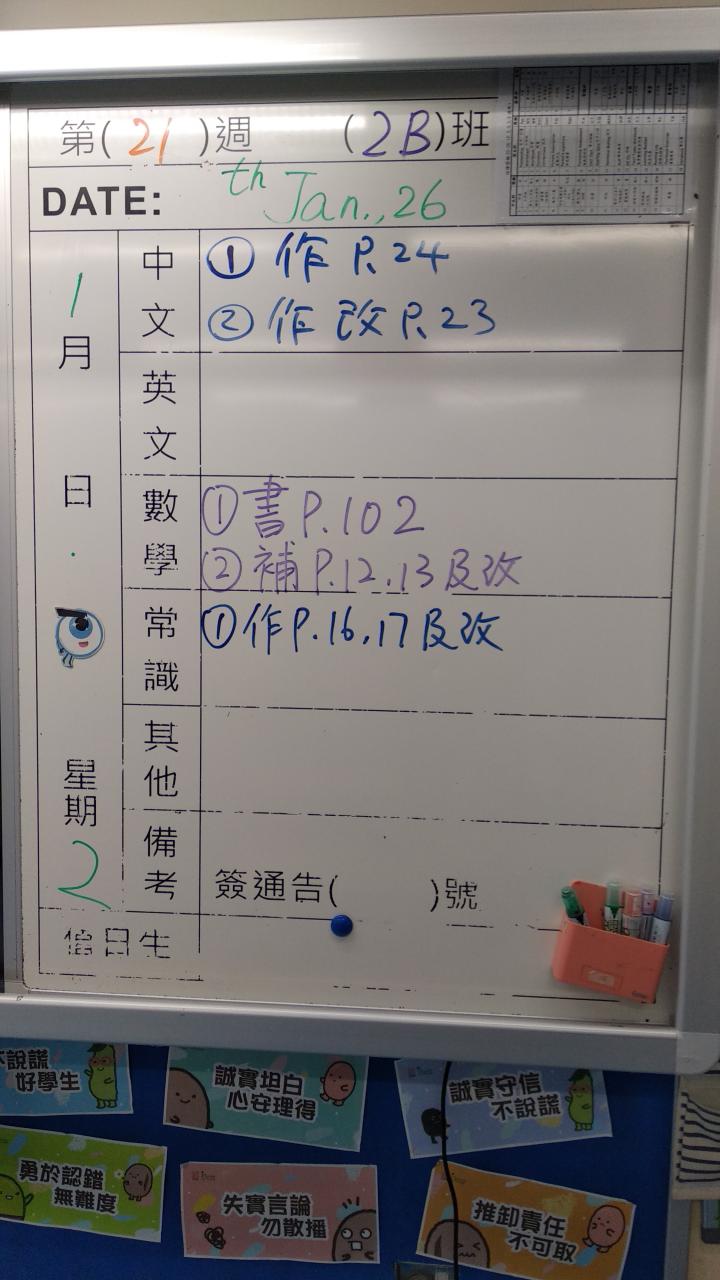 第(21)週 (2B)班
DATE: th Jan.,26
1月 日 星期2
中文
① 作 P.24
② 作 改 P.23
英文
數學
① 書 P.102
② 補 P.12,13 及改
常識
① 作 P.16,17 及改
其他
備考
簽通告( )號
值日生
不說謊
好學生
誠實坦白
心安理得
誠實守信
不說謊
勇於認錯
無難度
失實言論
勿散播
推卸責任
不可取